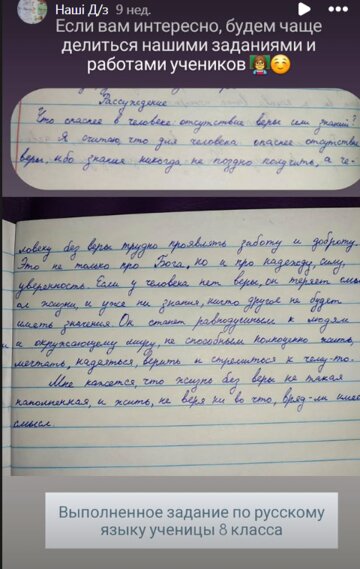 Наші Д/з 9 нед.
Если вам интересно, будем чаще
делиться нашими заданиями и
работами учеников 👩‍🏫☺️
Рассуждение
Что опаснее в человеке: отсутствие веры или знаний?
Я считаю, что для человека опаснее отсутствие
веры, ибо знания никогда не поздно получить, а че-
ловеку без веры трудно проявлять заботу и доброту.
Это не только про Бога, но и про надежду, силу,
уверенность. Если у человека нет веры, он теряет смы
сл жизни, и уже ни знания, ничто другое не будет
иметь значения. Он станет равнодушным к людям
и окружающему миру, не способным полноценно жить,
мечтать, надеяться, верить и стремиться к чему-то.
Мне кажется, что жизнь без веры не такая
наполненная, и жить, не веря ни во что, вряд-ли имее
смысл.
Выполненное задание по русскому
языку ученицы 8 класса